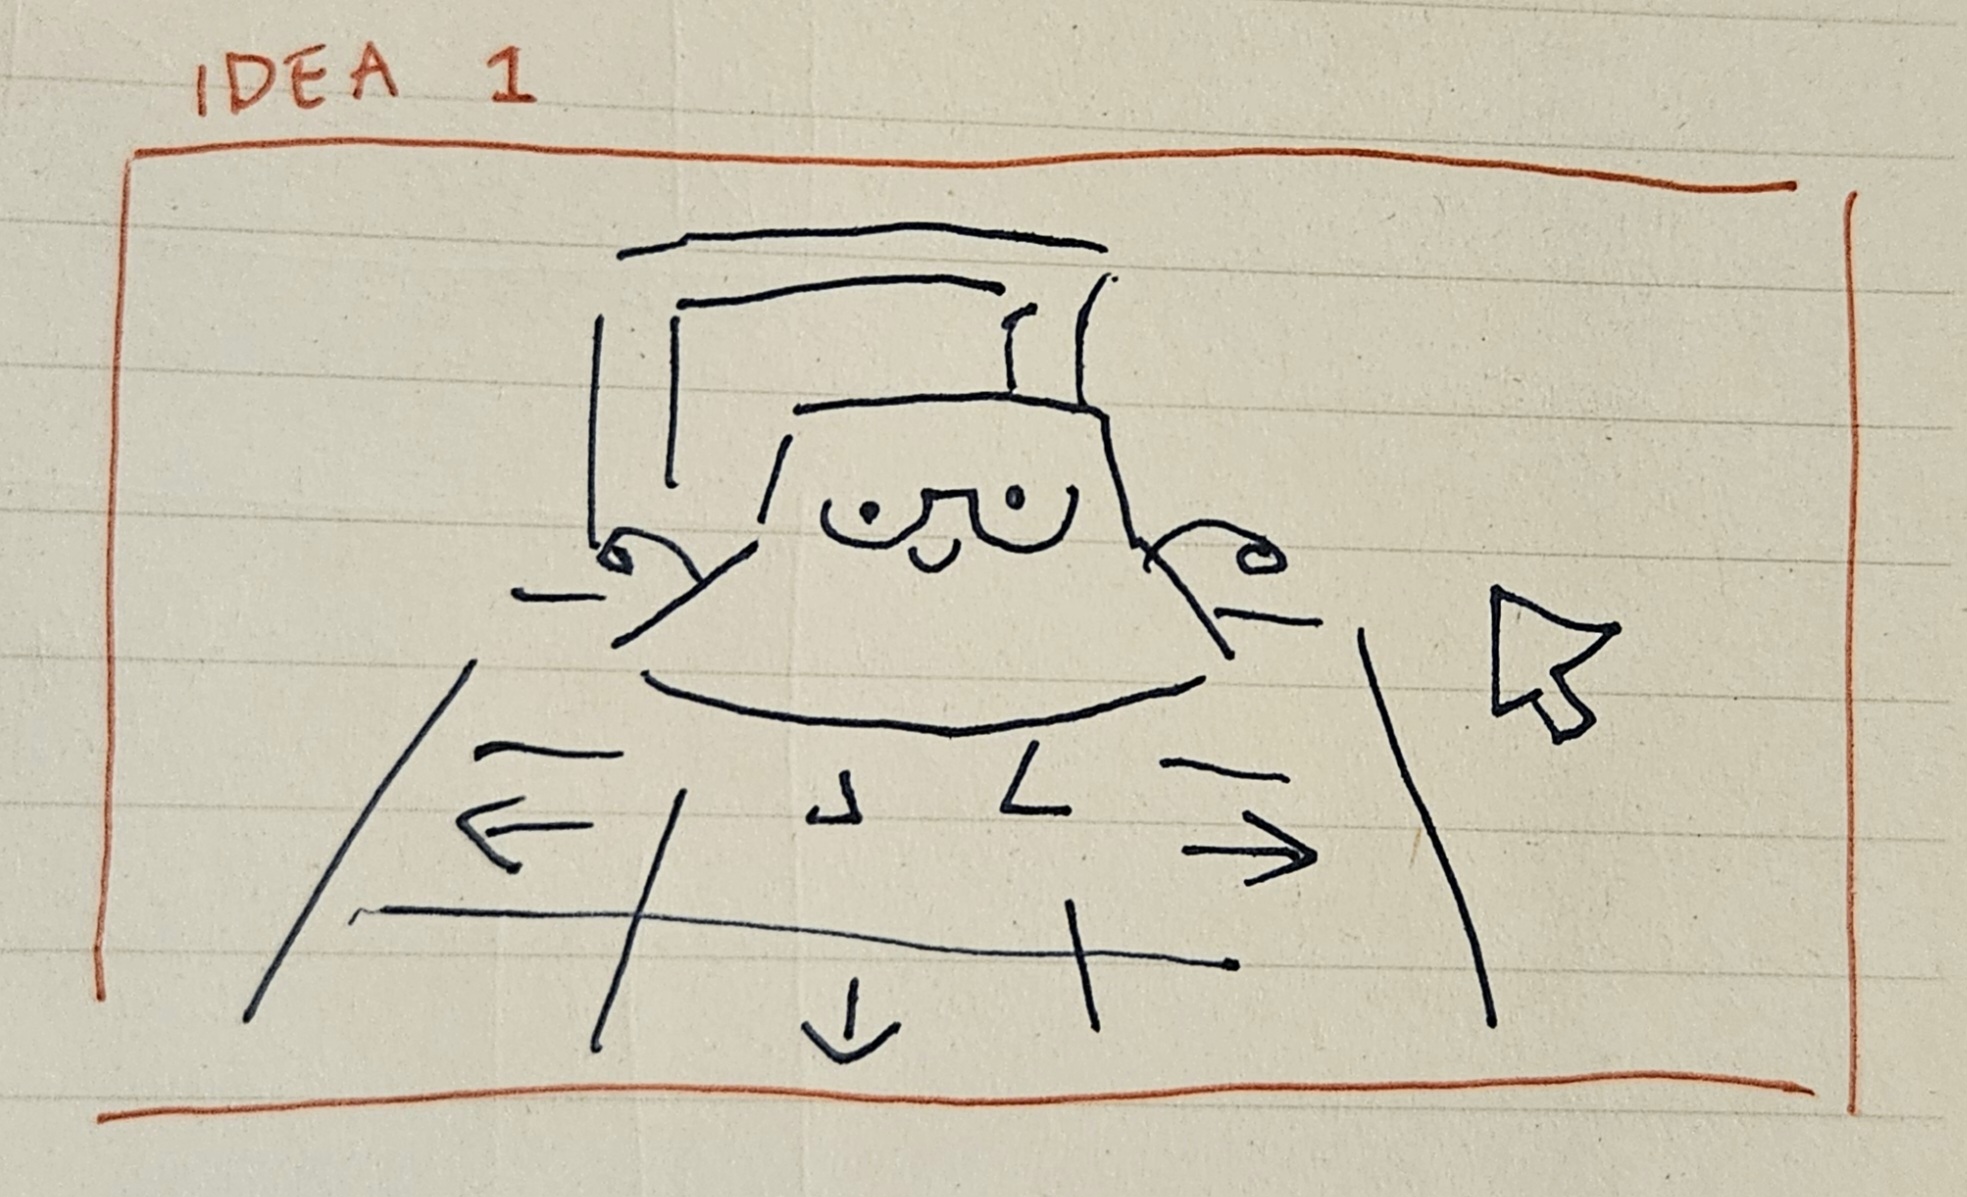 IDEA 1